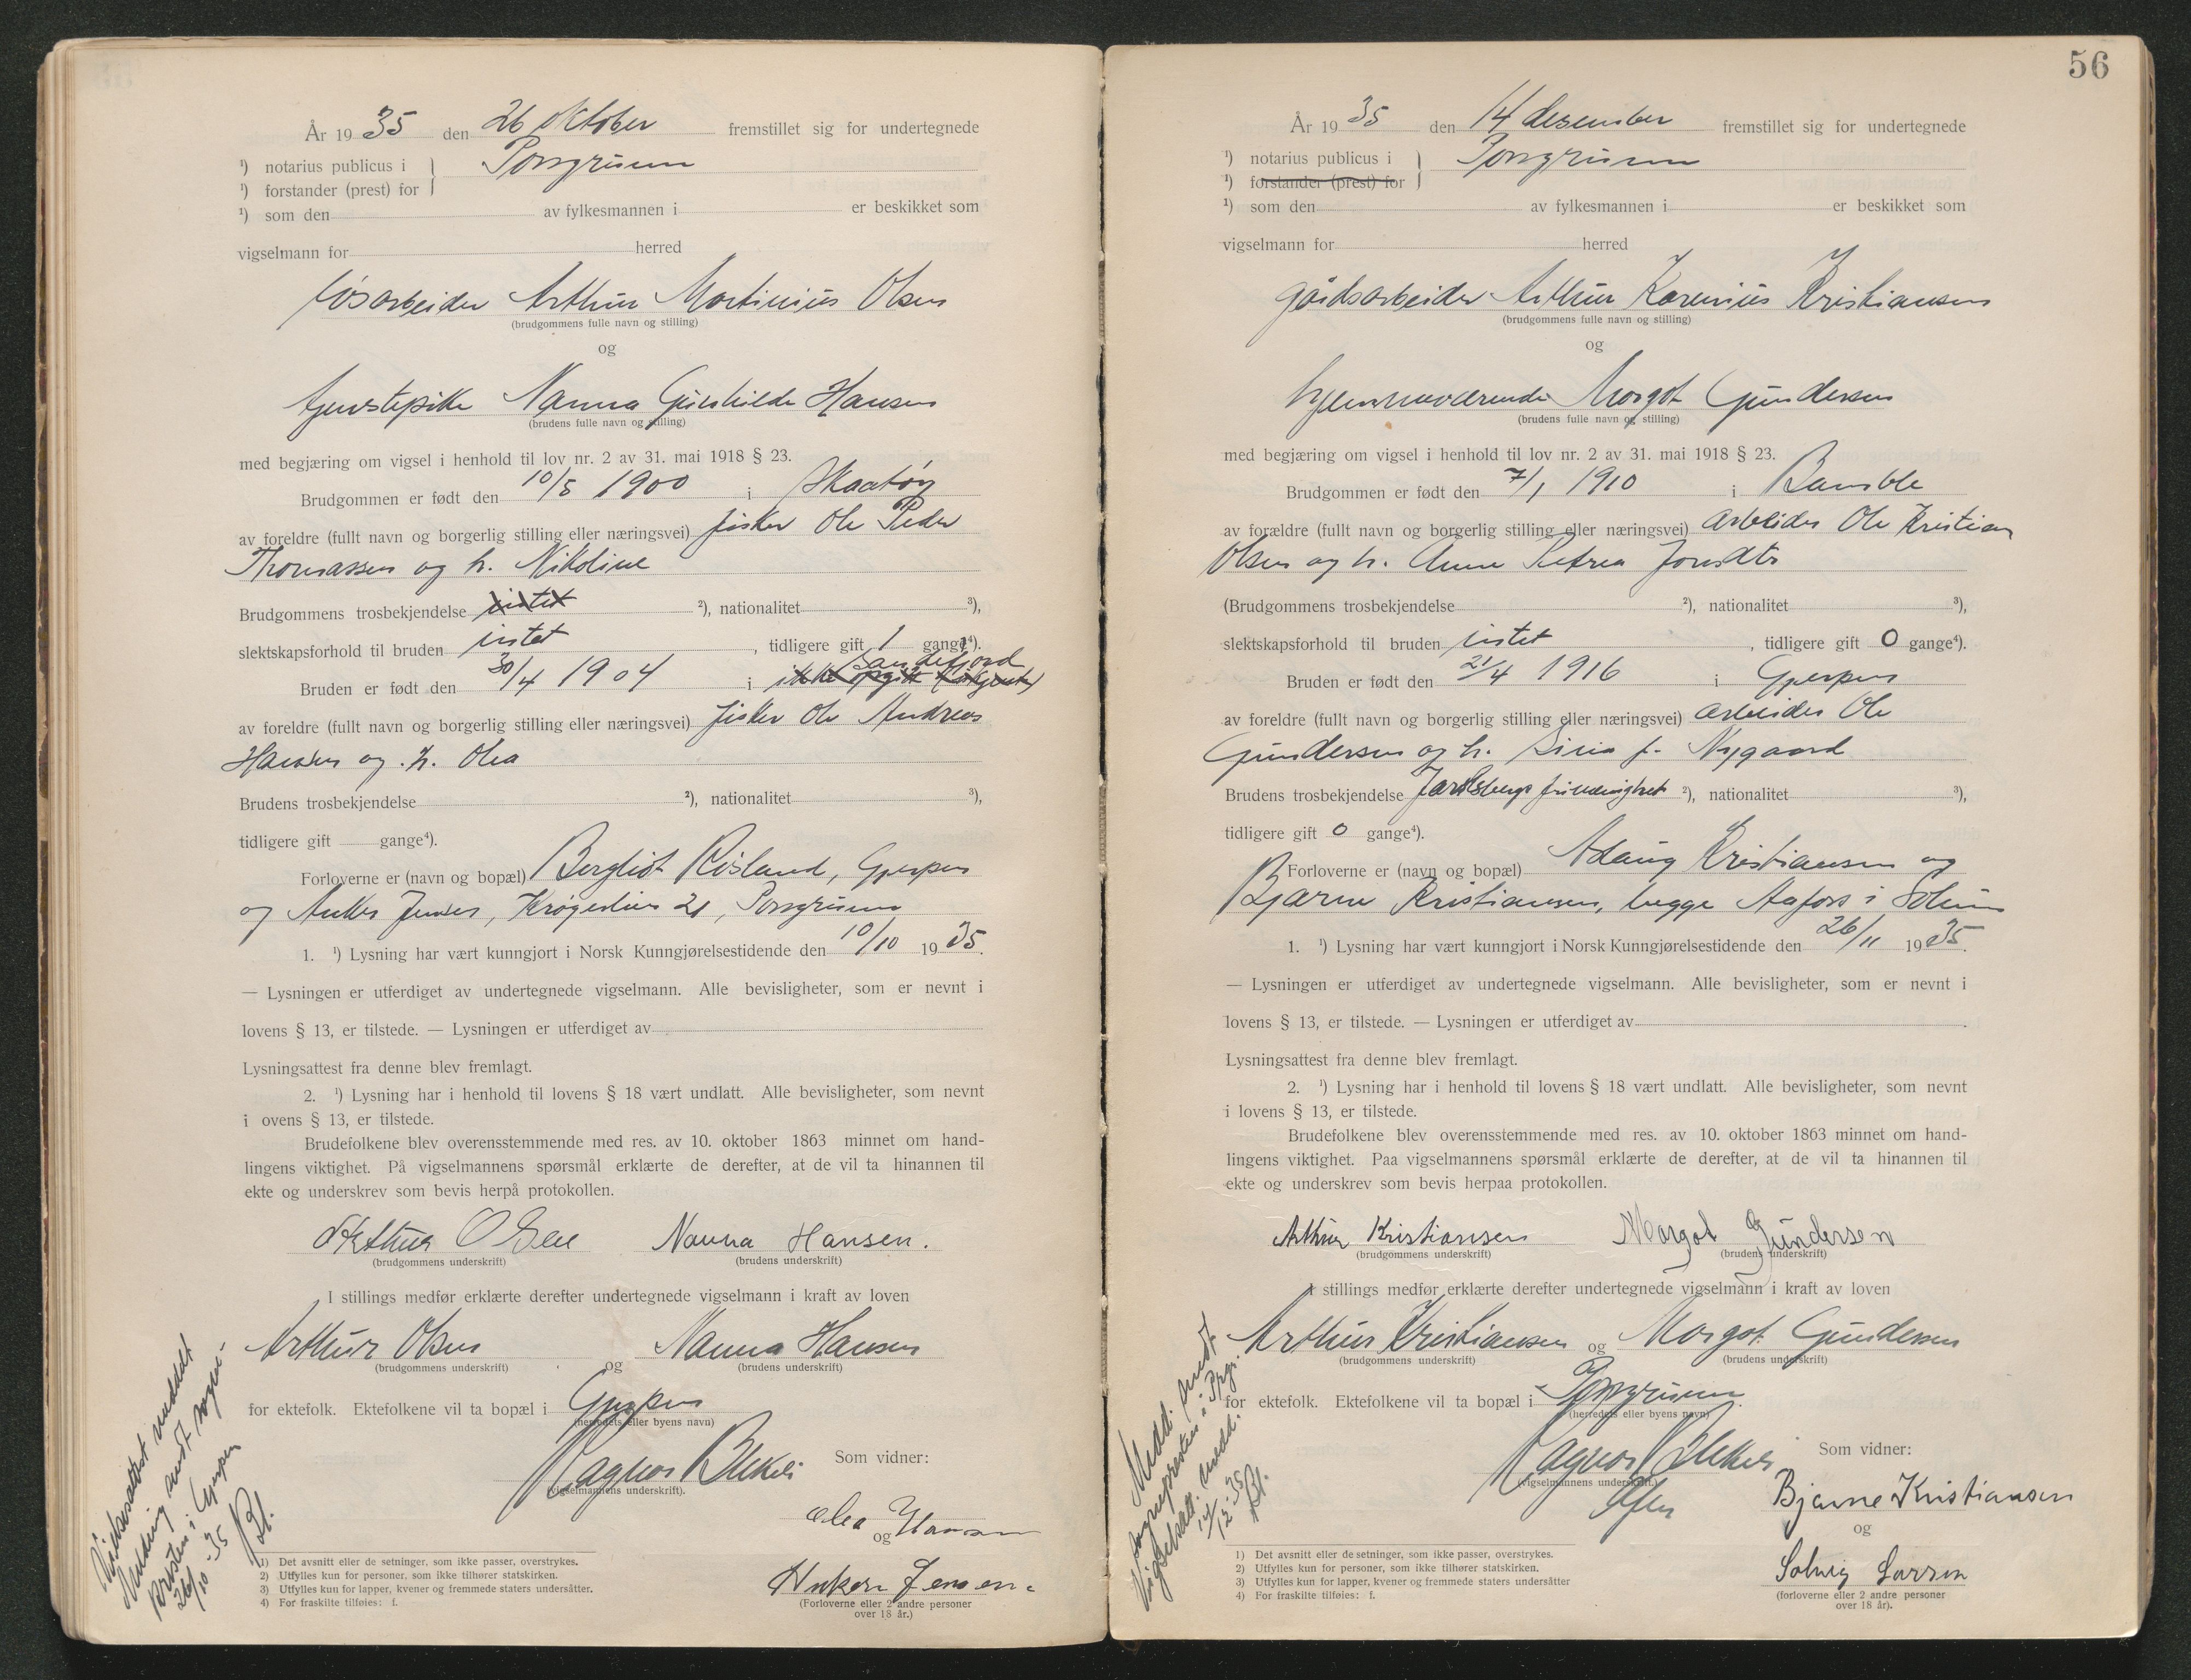 År 1935 den 26 oktober fremstillet sig for undertegnede
¹) notarius publicus i } Porsgrunn
¹) forstander (prest) for
¹) som den av fylkesmannen i er beskikket som
vigselmann for herred
løsarbeider Arthur Martinius Olsen
(brudgommens fulle navn og stilling)
og
tjenestepike Nanna Gunhilde Hansen
(brudens fulle navn og stilling)
med begjæring om vigsel i henhold til lov nr. 2 av 31. mai 1918 § 23.
Brudgommen er født den 10/5 1900 i Skaatøy
av foreldre (fullt navn og borgerlig stilling eller næringsvei) fisker Ole Peder
Thomassen og h. Nikoline
Brudgommens trosbekjendelse intet ²), nationalitet ³),
slektskapsforhold til bruden intet, tidligere gift 1 gange⁴).
Sandefjord
Bruden er født den 30/4 1904 i ikke opgitt
av foreldre (fullt navn og borgerlig stilling eller næringsvei) fisker Ole Andreas
Hansen og h. Olea
Brudens trosbekjendelse ²), nationalitet ³),
tidligere gift gange⁴).
Forloverne er (navn og bopæl) Bergliot Risland, Gjerpen
og Anker Jensen, Krøgerlien 21, Porsgrunn
1. ¹) Lysning har vært kunngjort i Norsk Kunngjørelsestidende den 10/10 1935.
— Lysningen er utferdiget av undertegnede vigselmann. Alle bevisligheter, som er nevnt i
lovens § 13, er tilstede. — Lysningen er utferdiget av
Lysningsattest fra denne blev fremlagt.
2. ¹) Lysning har i henhold til lovens § 18 vært undlatt. Alle bevisligheter, som nevnt
i ovens § 13, er tilstede.
Brudefolkene blev overensstemmende med res. av 10. oktober 1863 minnet om hand-
lingens viktighet. På vigselmannens spørsmål erklærte de derefter, at de vil ta hinannen til
ekte og underskrev som bevis herpå protokollen.
Arthur Olsen Nanna Hansen.
(brudgommens underskrift) (brudens underskrift)
I stillings medfør erklærte derefter undertegnede vigselmann i kraft av loven
Arthur Olsen og Nanna Hansen
(brudgommens underskrift) (brudens underskrift)
for ektefolk. Ektefolkene vil ta bopæl i Gjerpen
(herredets eller byens navn)
Ragnar Blekeli Som vidner:
(vigselmannens underskrift).
Olea Hansen
og
Anker Jensen
(Forloverne eller 2 andre personer
over 18 år.)
Vielsesattest meddelt
Melding sendt sogne-
presten i Gjerpen
26/10-35
Bl.
1) Det avsnitt eller de setninger, som ikke passer, overstrykes.
2) Utfylles kun for personer, som ikke tilhører statskirken.
3) Utfylles kun for lapper, kvener og fremmede staters undersåtter.
4) For fraskilte tilføies: f.
56
År 1935 den 14 desember fremstillet sig for undertegnede
¹) notarius publicus i } Porsgrunn
¹) forstander (prest) for
¹) som den av fylkesmannen i er beskikket som
vigselmann for herred
gårdsarbeider Arthur Karenius Kristiansen
(brudgommens fulle navn og stilling)
og
hjemmeværende Margot Gundersen
(brudens fulle navn og stilling)
med begjæring om vigsel i henhold til lov nr. 2 av 31. mai 1918 § 23.
Brudgommen er født den 7/1 1910 i Bamble
av forældre (fullt navn og borgerlig stilling eller næringsvei) arbeider Ole Kristian
Olsen og h. Anne Petrea
(Brudgommens trosbekjendelse ²), nationalitet ³),
slektskapsforhold til bruden intet, tidligere gift 0 gange⁴).
Bruden er født den 21/4 1916 i Gjerpen
av foreldre (fullt navn og borgerlig stilling eller næringsvei) arbeider Ole
Gundersen og h. Sina f. Nygaard
Brudens trosbekjendelse Jarlsbergs frimenighet ²), nationalitet ³),
tidligere gift 0 gange⁴).
Forloverne er (navn og bopæl) Aslaug Kristiansen og
Bjarne Kristiansen, begge Aafoss i Solum
1. ¹) Lysning har vært kunngjort i Norsk Kunngjørelsestidende den 26/11 1935.
— Lysningen er utferdiget av undertegnede vigselmann. Alle bevisligheter, som er nevnt i
lovens § 13, er tilstede. — Lysningen er utferdiget av
Lysningsattest fra denne blev fremlagt.
2. ¹) Lysning har i henhold til lovens § 18 vært undlatt. Alle bevisligheter, som nevnt
i lovens § 13, er tilstede.
Brudefolkene blev overensstemmende med res. av 10. oktober 1863 minnet om hand-
lingens viktighet. Paa vigselmannens spørsmål erklærte de derefter, at de vil ta hinannen til
ekte og underskrev som bevis herpaa protokollen.
Arthur Kristiansen Margot Gundersen
(brudgommens underskrift) (brudens underskrift)
I stillings medfør erklærte derefter undertegnede vigselmann i kraft av loven
Arthur Kristiansen og Margot Gundersen
(brudgommens underskrift) (brudens underskrift)
for ektefolk. Ektefolkene vil ta bopæl i Porsgrunn
(herredets eller byens navn)
Ragnar Blekeli Som vidner:
(vigselmannens underskrift).
Bjarne Kristiansen
og
Solveig Larsen
(forloverne eller 2 andre personer
over 18 år).
Medd. sendt
sognepresten i Prgr.
Vigselsatt. medd.
14/12-35
Bl.
1) Det avsnitt eller de setninger, som ikke passer, overstrykes.
2) Utfylles kun for personer, som ikke tilhører statskirken.
3) Utfylles kun for lapper, kvener og fremmede staters undersåtter
4) For fraskilte tilføies: f.